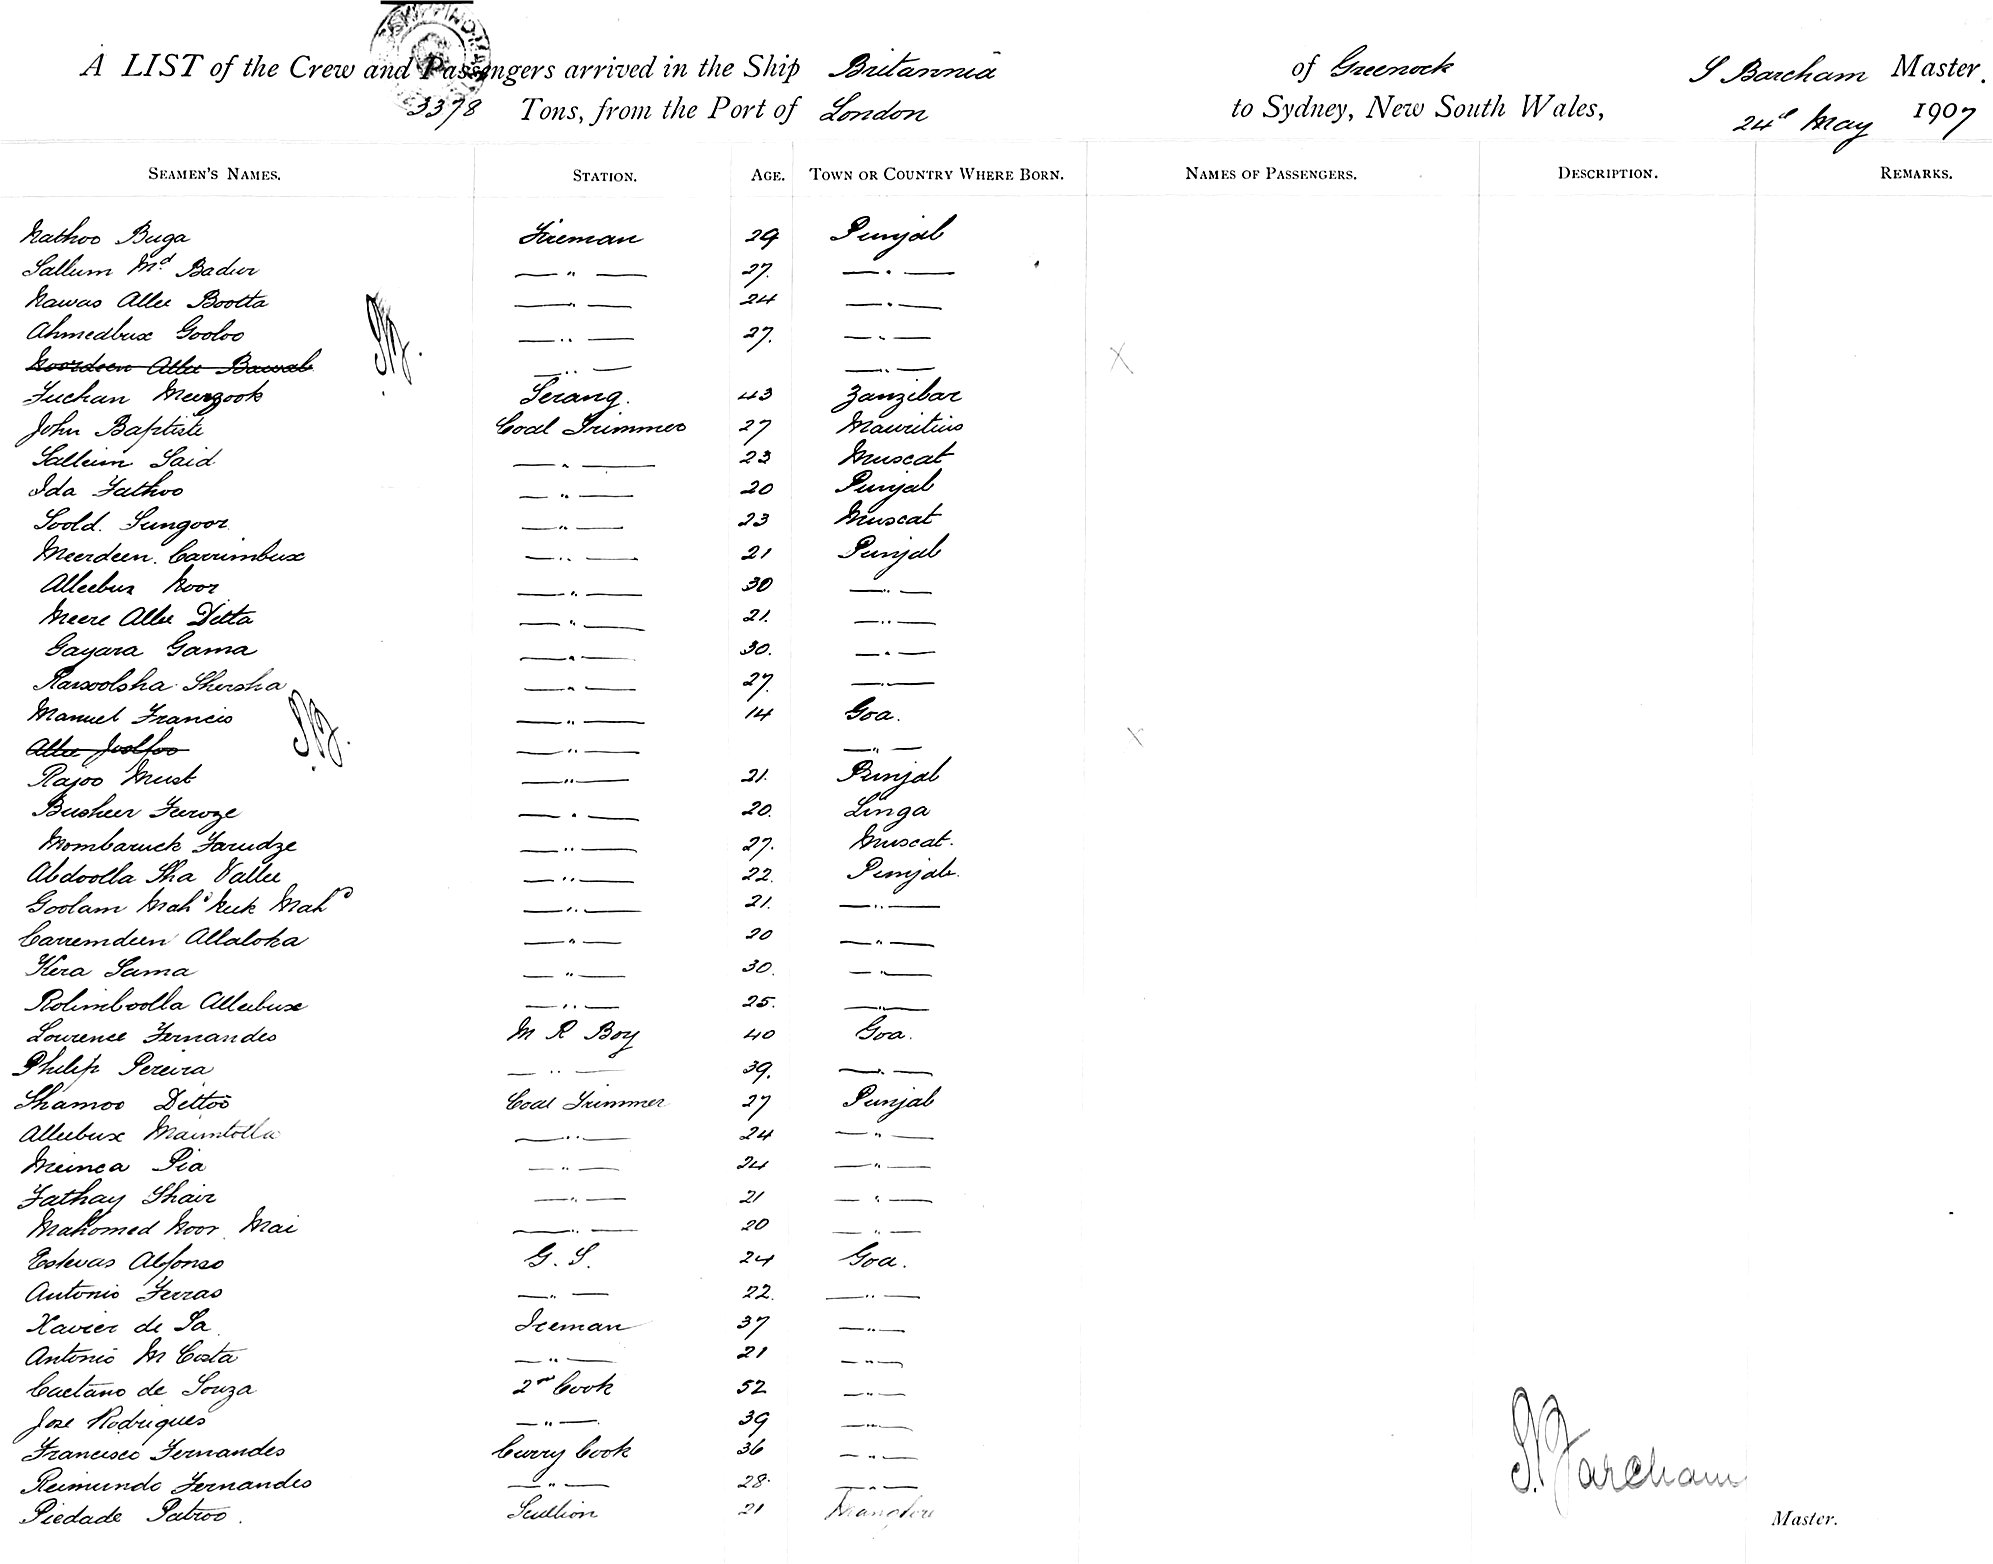 A LIST of the Crew and Passengers arrived in the Ship Britannia of Greenock S Barcham Master.
3378 Tons, from the Port of London to Sydney, New South Wales, 24th May 1907
SEAMEN'S NAMES. STATION. AGE. TOWN OR COUNTRY WHERE BORN. NAMES OF PASSENGERS. DESCRIPTION. REMARKS.
Nathoo Buga Fireman 29 Punjab
Sallum Md Badur — " — 27. — " —
Nawas Allee Bootta — " — 24 — " —
Ahmedbux Gooloo — " — 27. — " —
Noordeen Allee Bawab — " — — " —
Fuchan Meerzook Serang. 43 Zanzibar
John Baptiste Coal Trimmer 27 Mauritius
Salleim Said — " — 23 Muscat
Ida Fathoo — " — 20 Punjab
Soold. Sungoor — " — 23 Muscat
Meerdeen. Carrimbux — " — 21 Punjab
Alleebux Noor — " — 30 — " —
Meere Allee Ditta — " — 21. — " —
Gayara Gama — " — 30. — " —
Rasoolsha Shersha — " — 27. — " —
Manuel Francis — " — 14 Goa.
Allee — " — — " —
Rajoo Must — " — 21. Punjab
Busheer Feroze — " — 20. Linga
Mombaruck Farudze — " — 27. Muscat.
Abdoolla Sha Vallee — " — 22. Punjab.
Goolam Mahd Neek Mahd — " — 21. — " —
Carremdeen Allaloka — " — 20 — " —
Kera Sama — " — 30. — " —
Rohimboolla Alleebux — " — 25. — " —
Lourence Fernandes M R Boy 40 Goa.
Philip Pereira — " — 39. — " —
Shamoo Dittoo Coal Trimmer 27 Punjab
Alleebux Maimtolla — " — 24 — " —
Meinea Pia — " — 24 — " —
Fathay Shair — " — 21 — " —
Mahomed Noor Mai — " — 20 — " —
Estevas Alfonso G. S. 24 Goa.
Antonio Ferras — " — 22. — " —
Xavier de Sa Iceman 37 — " —
Antonio M Costa — " — 21 — " —
Caetano de Souza 2nd Cook 52 — " —
Jose Rodrigues — " — 39 — " —
Francisco Fernandes Curry Cook 36 — " —
Reimundo Fernandes — " — 28. — " —
Piedade Patroo. Scullion 21
S. Barcham
Master.